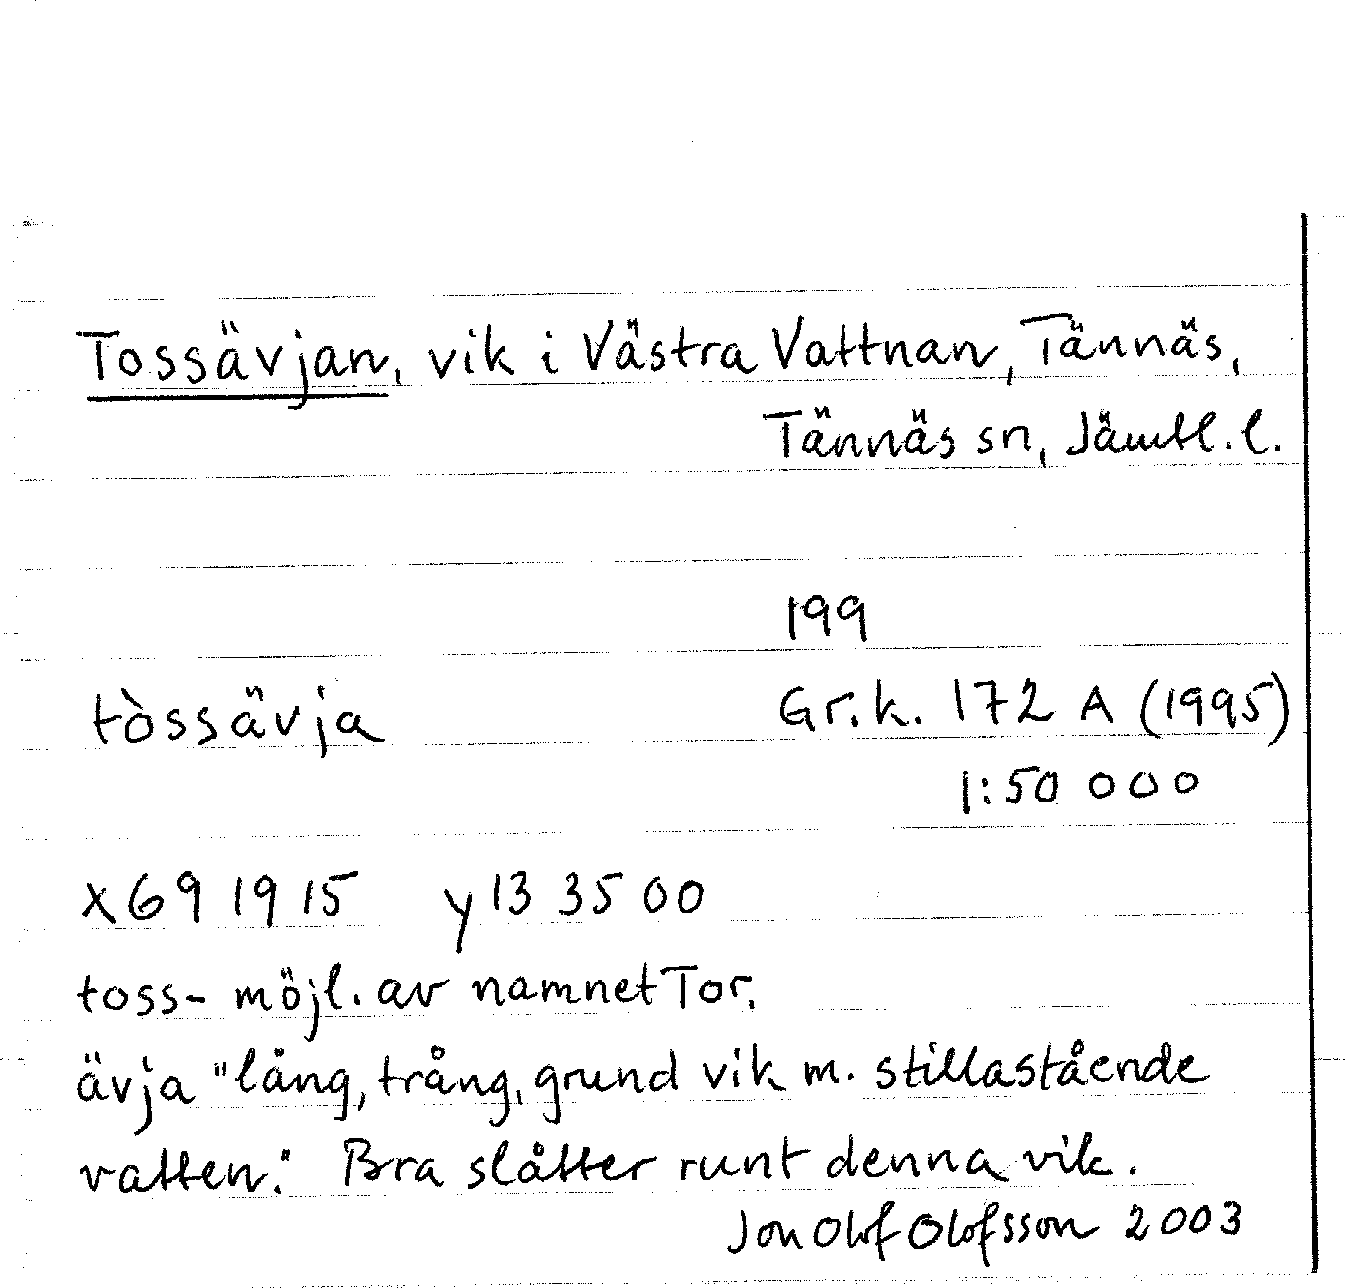 Tossävjan, vik i Västra Vattnan, Tännäs,
Tännäs sn, Jämtl. l.
199
tòssävja Gr.k. 172 A (1995)
1:50 000
x69 19 15 y13 35 00
toss- möjl. av namnet Tor.
ävja "lång, trång, grund vik m. stillastående
vatten." Bra slåtter runt denna vik.
Jon Olof Olofsson 2003